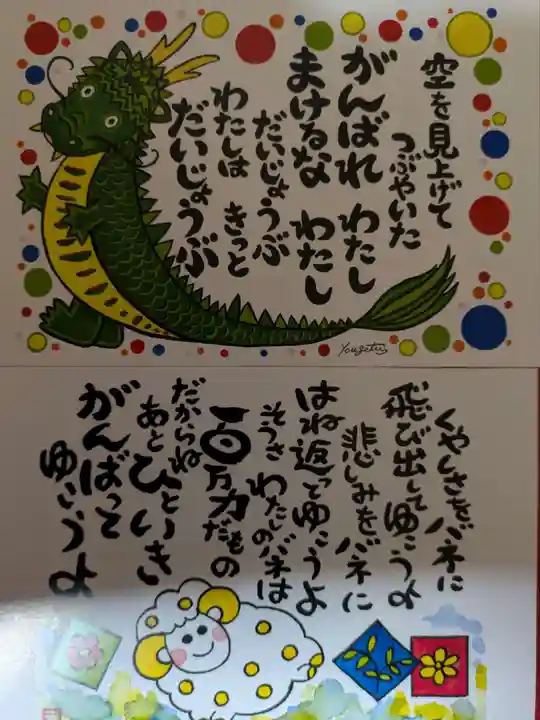 空を見上げて
つぶやいた
がんばれ わたし
まけるな わたし
だいじょうぶ
わたしは きっと
だいじょうぶ
Yougetu
くやしさをバネに
飛び出してゆこうよ
悲しみをバネに
はね返ってゆこうよ
そうさ わたしのバネは
百万力だもの
だからね
あと ひといき
がんばって
ゆこうよ